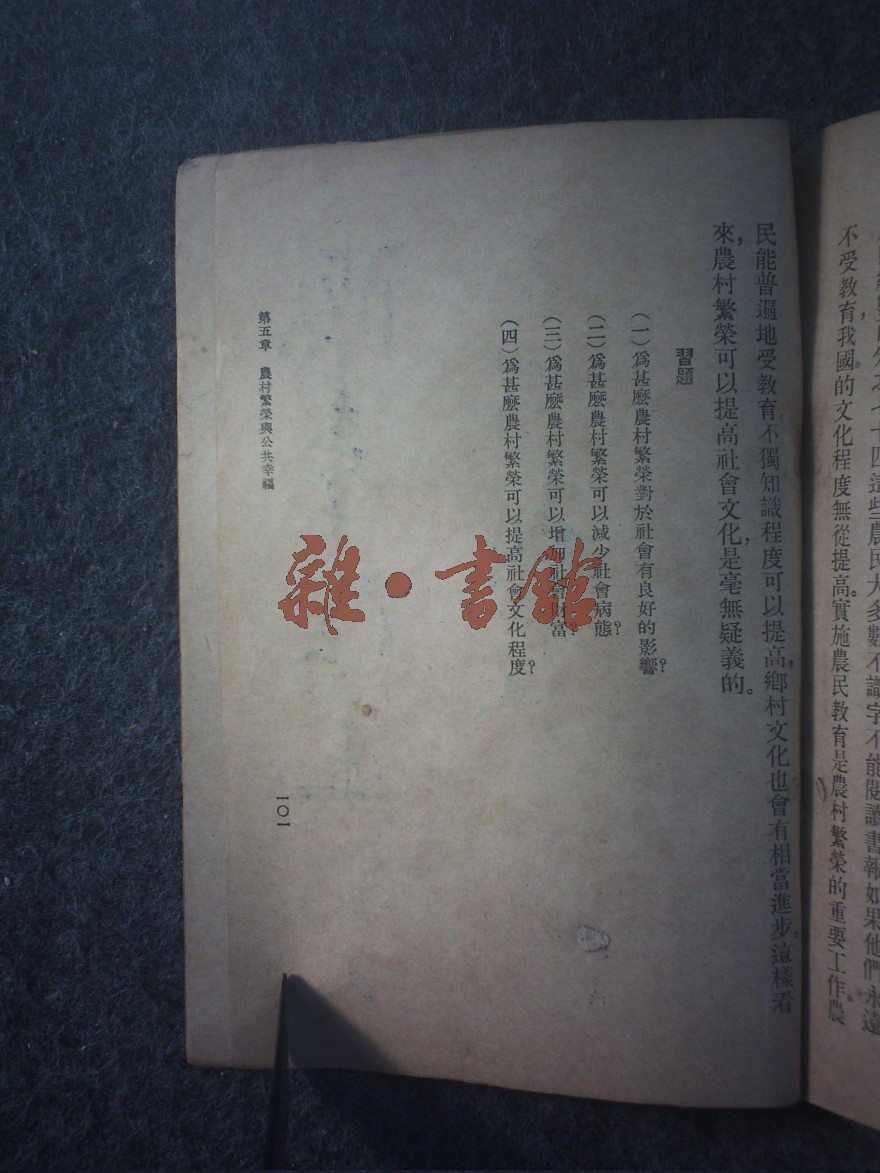 七十四這些農民大多數不識字不能閱讀書報如果他們永遠
不受教育，我國的文化程度無從提高。實施農民教育是農村繁榮的重要工作。農
民能普遍地受教育，不獨知識程度可以提高，鄉村文化也會有相當進步。這樣看
來，農村繁榮可以提高社會文化，是毫無疑義的。
習題
（一）爲甚麽農村繁榮對於社會有良好的影響？
（二）爲甚麽農村繁榮可以減少社會病態？
（三）爲甚麽農村繁榮可以增加社會財富？
（四）爲甚麽農村繁榮可以提高社會文化程度？
第五章　農村繁榮與公共幸福
一〇一
雜·書館